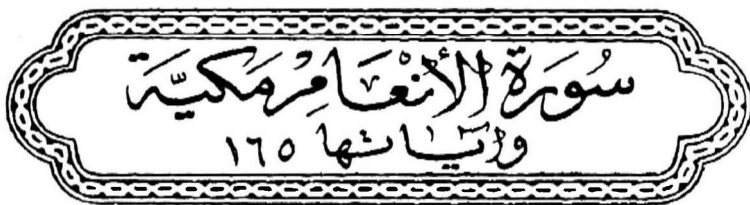 سُورَةُ الْأَنْعَامِ مَكِّيَّة
وَآيَاتُهَا ١٦٥